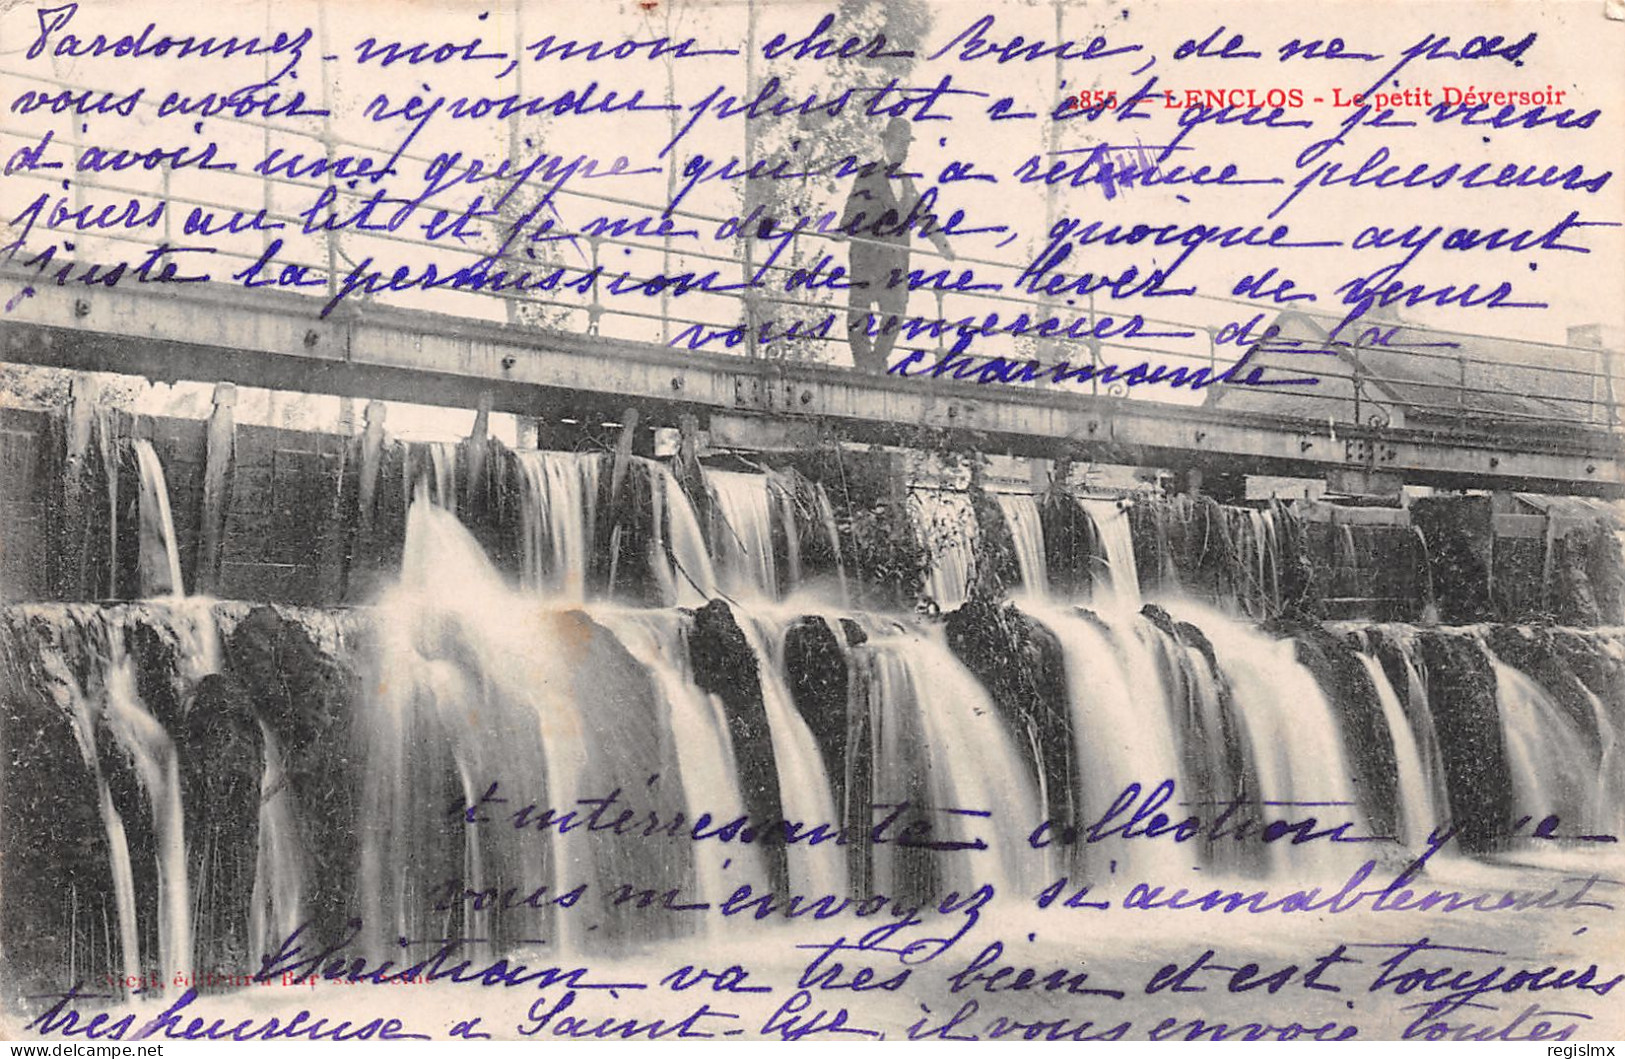 Pardonnez-moi, mon cher René, de ne pas
855 - LENCLOS - Le petit Déversoir
vous avoir répondu plustot c'est que je viens
d'avoir une grippe qui m'a retenue plusieurs
jours au lit et je me dépêche, quoique ayant
juste la permission de me lever de venir
vous remercier de la
charmante
et intérressante collection que
vous m'envoyez si aimablement
éditeur à Bar sur Seine
Christian va très bien et est toujours
très heureuse a Saint-Lyé, il vous envoie toutes
regislmx